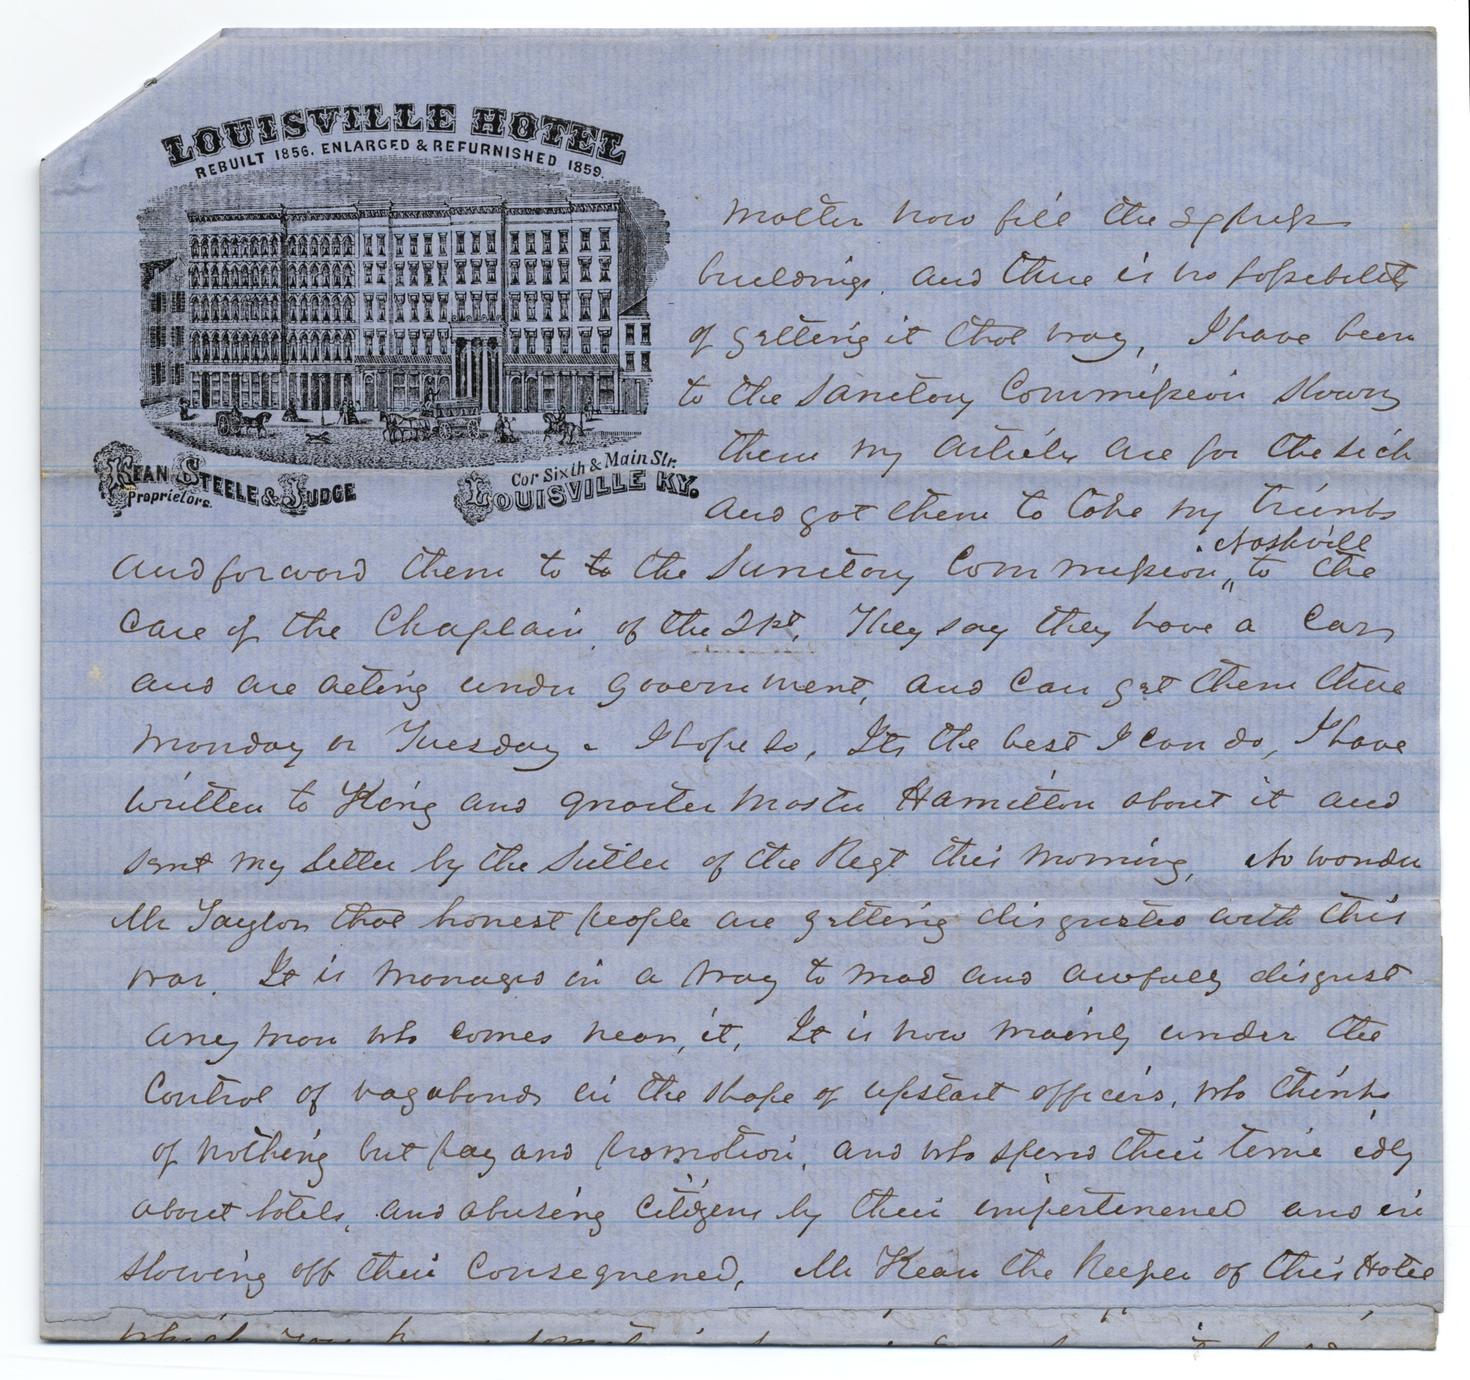 LOUISVILLE HOTEL
REBUILT 1856. ENLARGED & REFURNISHED 1859.
KEAN STEELE & JUDGE
Proprietors.
Cor Sixth & Main Str.
LOUISVILLE KY.
Matter now fill the express
buildings. and there is no possibility
of getting it that way, I have been
to the Sanitary Commission shown
them my articles are for the sick
and got them to take my trunks
and forward them to to the Sanitary Commission, Nashville to the
care of the Chaplain of the 21st. They say they have a Car
and are acting under government, and can get them there
Monday or Tuesday - I hope so, Its the best I can do, I have
written to King and quarter master Hamilton about it and
sent my letter by the Sutler of the Regt this morning, No wonder
Mr Taylor that honest people are getting disgusted with this
war. It is managed in a way to mad and awfully disgust
any man who comes near it, It is now mainly under the
Control of vagabonds in the shape of upstart officers, who thinks
of nothing but pay and promotion, and who spend their time idly
about hotels, and abusing citizens by their impertinence and in
showing off their consequence, Mr Kean the Keeper of this Hotel
which you